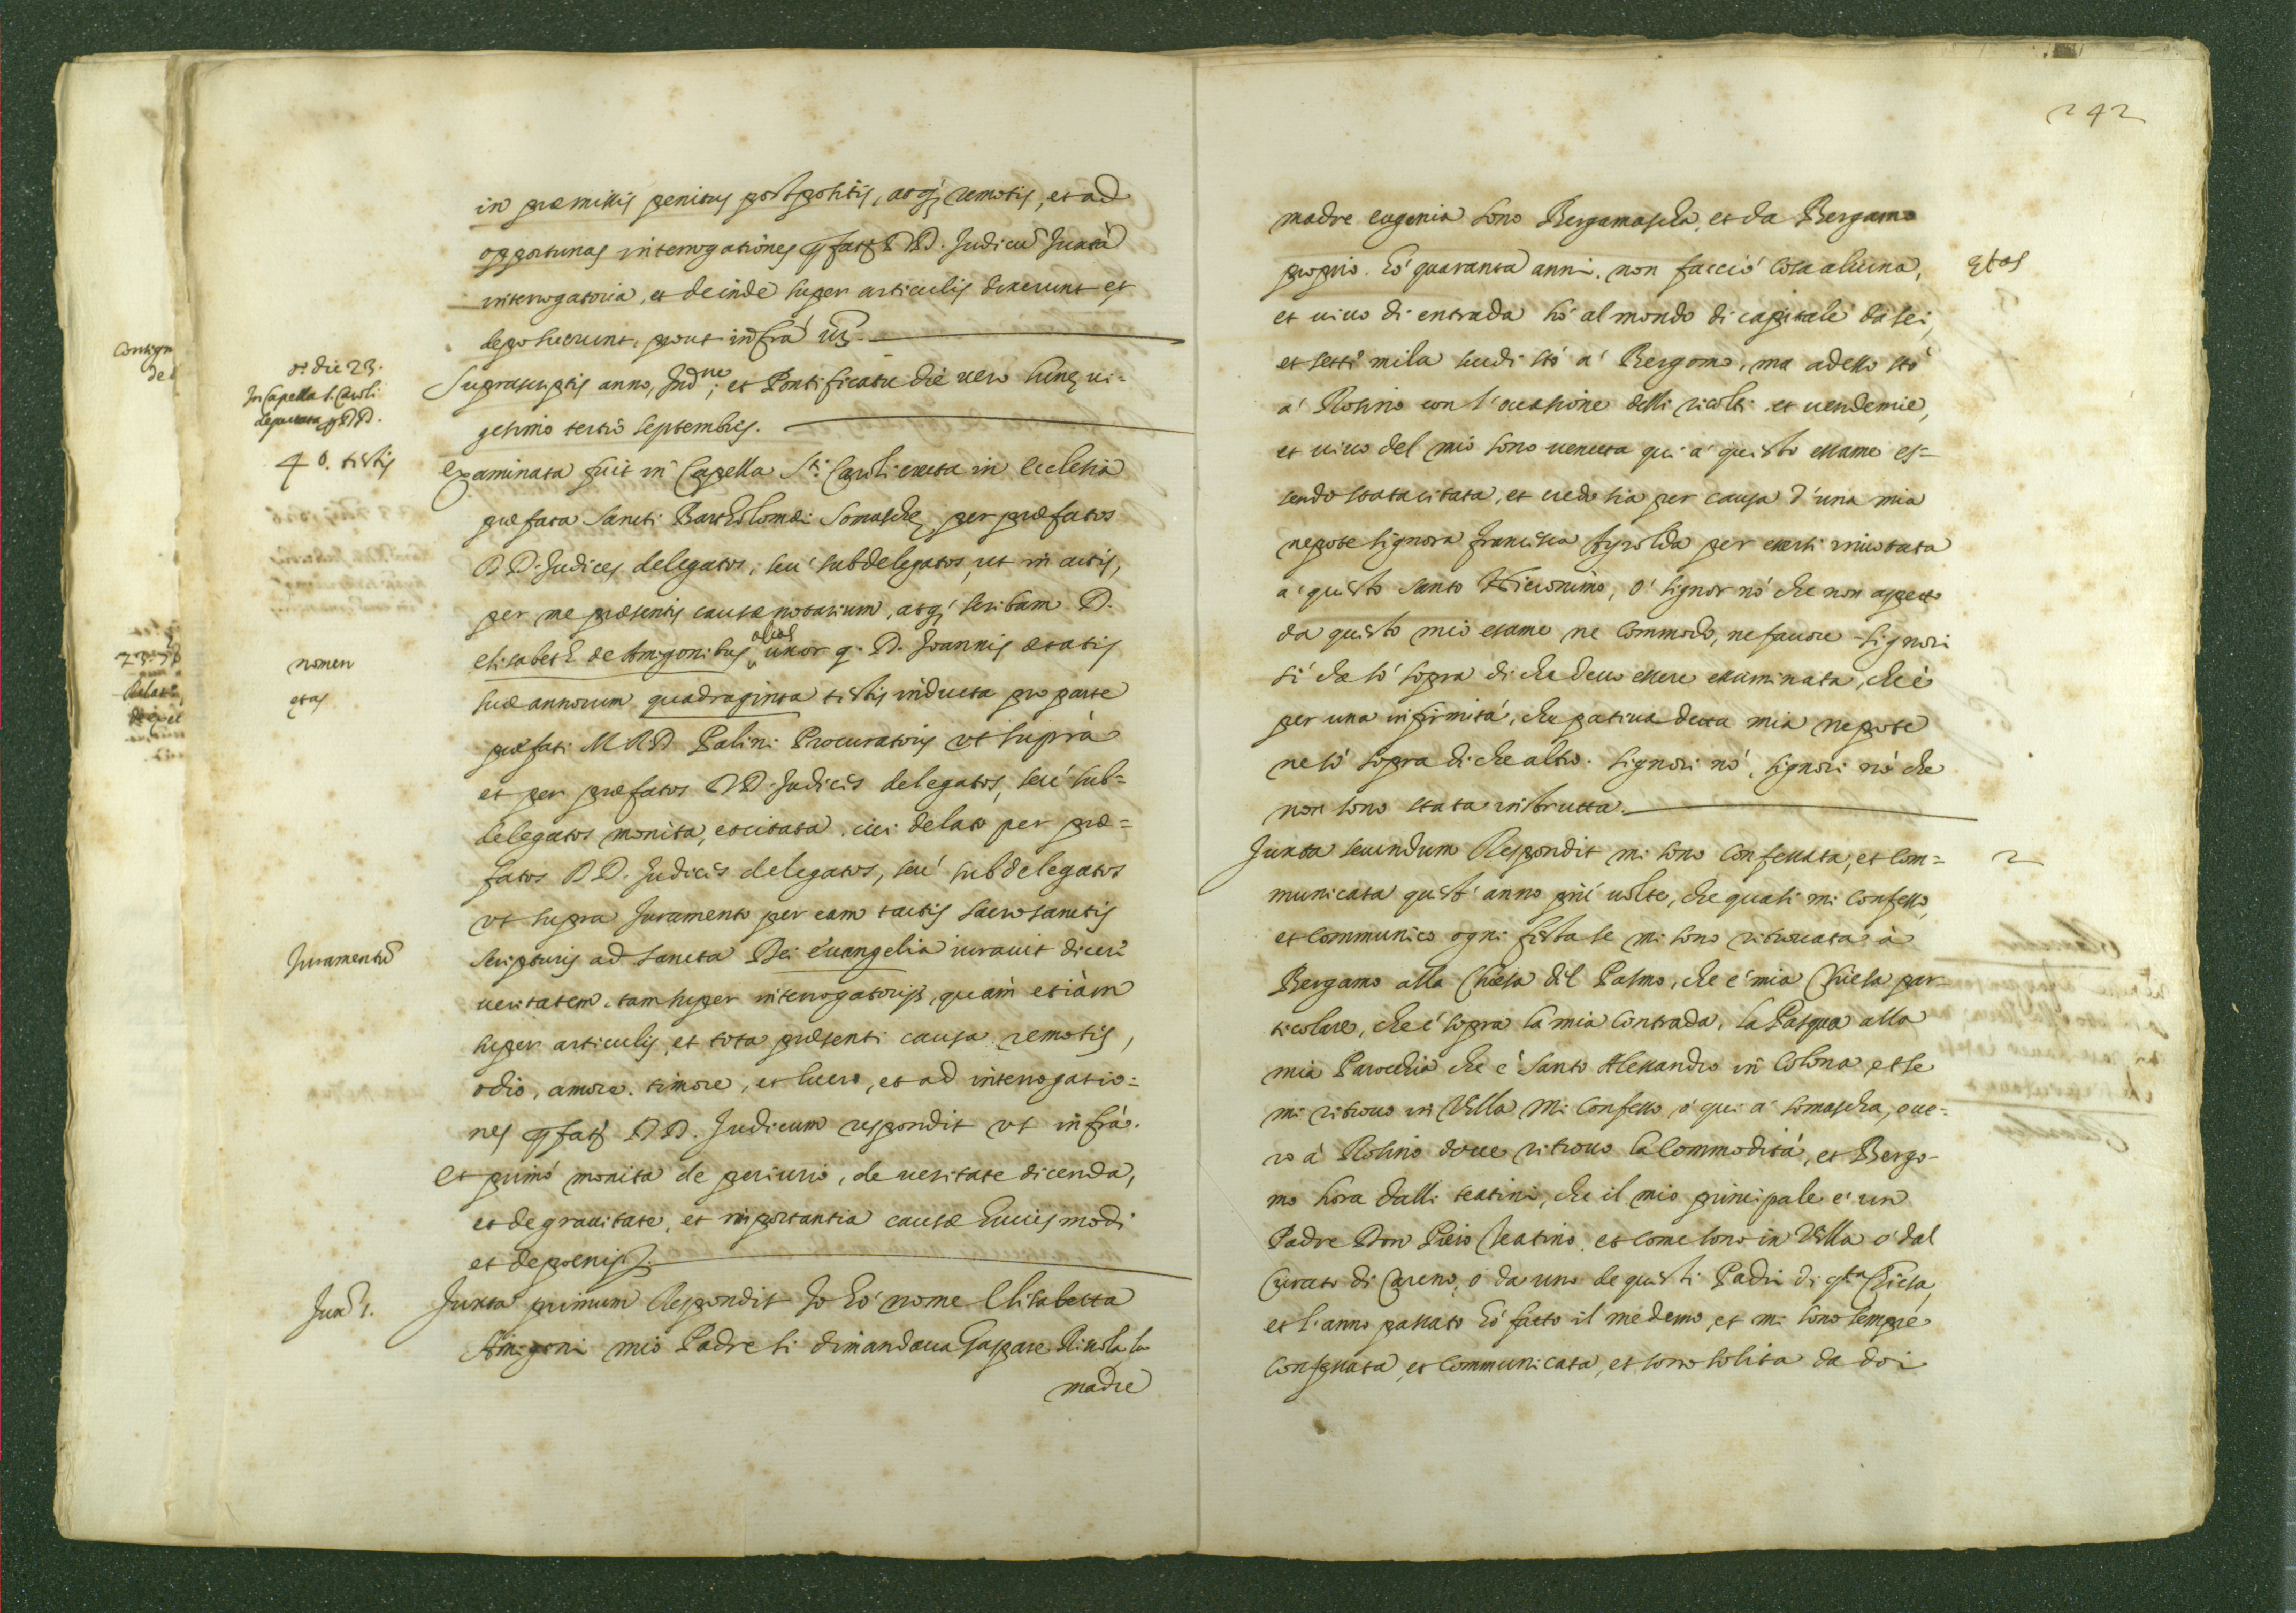 in præmissis penitus postpositis, atq; remotis, et ad
opportunas interrogationes pfatt DD. Judicũ Juxta
interrogatoria, et deinde super articulis dixerunt et
deposuerunt, prout infrà uz.
Contign
de
o: die 23.
In Capella S. Caroli
deputata p DD.
Suprascriptis anno, Ind.ne; et Pontificatu die uero hinc ui-
gesimo tertio septembris.
4 o. testis
Examinata fuit in Capella S.ti Caroli erecta in ecclesia
præfata Sancti Bartholomæi Somaschę per præfatos
DD. Judices delegatos, seu' subdelegatos, ut in actis,
per me præsentis causæ notarium, atq; scribam D.
nomen
Elisabeth de Amigonibus alias uxor q. D. Joannis ætatis
etas
suæ annorum quadraginta testis inducta pro parte
præfati M R D Palini Procuratoris ut suprà
et per præfatos DD. Judices delegatos, seu' sub=
delegatos monita, et citata, cui delato per præ=
fatos DD. Judices delegatos, seu' subdelegatos
ut supra Juramento per eam tactis sacrosanctis
Juramentũ
scripturis ad sancta Dei euangelia iurauit dicere
ueritatem, tam super interrogatorijs, quàm etiàm
super articulis, et tota præsenti causa remotis,
odio, amore, timore, et lucro, et ad interrogatio=
nes pfatt DD. Judicum respondit ut infrà.
Et primo monita de periurio, de ueritate dicenda,
et de grauitate, et importantia causæ huiusmodi
et de poenis
Jux.ª 1.
Juxta primum Respondit Io hò nome Elisabetta
Amigoni mio Padre si dimandaua Gaspare Riuola, la
madre
242
madre eugenia sono Bergamascha, et da Bergamo
proprio. hò quaranta anni, non faccio cosa alcuna,
etas
et uiuo di entrada hò al mondo di capitale da sei,
et sette mila scudi stò a' Bergomo, ma adesso stò
a' Rosino con l'occasione delli ricolti et uendemie,
et uiuo del mio sono uenuta qui a' questo essame es=
sendo stata citata, et credo sia per causa d'una mia
nepote signora francisca per essersi inuotata
a' questo santo Hieronimo, ò signor nò che non aspetto
da questo mio esame ne commodo, ne fauore signori
sì che sò sopra di che deuo essere essaminata, che è
per una infirmità, che patiua detta mia nepote
ne sò sopra di che altro. signori nò, signori nò che
non sono stata instrutta.
Juxta secundum Respondit mi sono confessata, et com=
2
municata quest'anno più uolte, che quasi mi confesso,
et communico ogni festa se mi sono ritrouata à
Bergamo alla Chiesa del Patmo, che è mia Chiesa par-
ticolare, che è sopra la mia contrada, la Pasqua alla
mia Parochia che è Santo Alessandro in Colona et se
mi ritrouo in Villa mi confesso ò qui a' somascha, oue=
ro à Rosino doue ritrouo la commodità, et Bergo-
mo hora dalli teatini, che il mio principale è un
Padre Don Piero Theatino, et come sono in Villa ò dal
Curato di Careno, ò da uno de questi Padri di q.sta Chiesa,
et l'anno passato hò fatto il medemo, et mi sono sempre
confessata, et communicata, et sono solita da doi